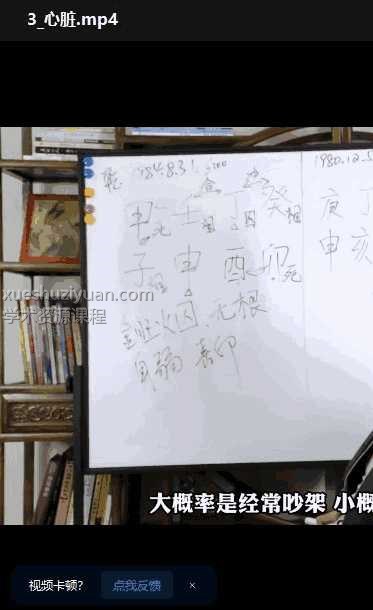 3_心脏.mp4
乾 1984.8.31
1980.12.5
甲 壬 丁 癸相
庚 丁
子 申 酉 卯死
申 亥
xueshuziyuan.com
学术资源课程
金旺火囚、无根
身弱 喜印
大概率是经常吵架 小概
视频卡顿? 点我反馈 ×